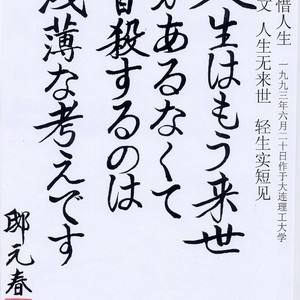 惜人生 一九九三年六月二十日作于大连理工大学
文 人生无来世 轻生实短见
人生はもう来世
があるなくて
自殺するのは
浅薄な考えです
邸元春